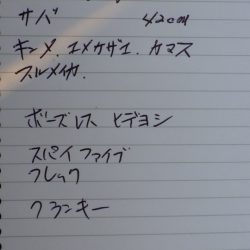 サバ 42cm
キンメ.ユメカサゴ.カマス
スルメイカ.
ボーズレス ヒデヨシ
スパイファイブ
フレック
クランキー